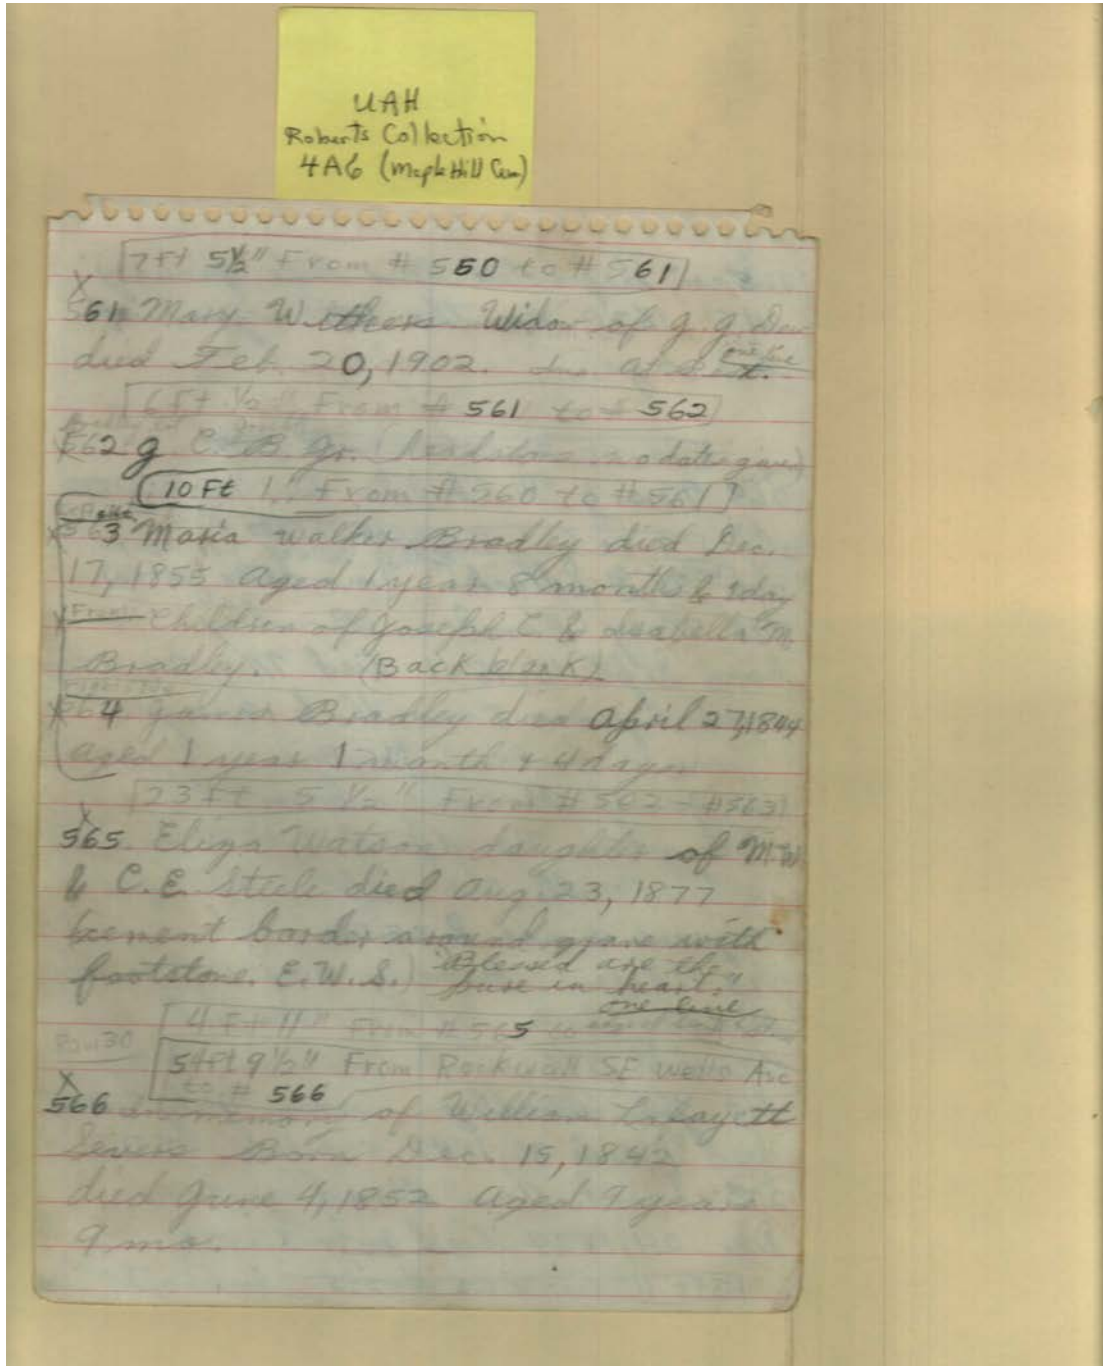 UAH
Roberts Collection
4A6 (Maple Hill Cem)
7ft 5½" From # 560 to # 561
X
561 Mary Withers Widow of g. g.
died Feb. 20, 1902. one line
6 Ft ½" From # 561 to # 562
562 g. C. B. Jr. (headstone no date given)
10 Ft 1" From # 560 to # 561
X 563 Maria Walker Bradley died Dec.
17, 1855 aged 1 year 8 month & 1 day
X Front Children of Joseph C. & Isabella M.
Bradley. (Back blank)
X 564 Bradley died april 27, 1844
aged 1 year 1 month & 4 days
23 ft. 5 ½" From # 502 - # 563
X
565 Eliza Watson daughter of M.W
& C.E. Steele died Aug. 23, 1877
(cement border around grave with
footstone. E.W.S.) "Blessed are the
pure in heart."
one line
4 Ft 11" From # 565 to
Row 30
54ft 9 ½" From Rockwall SE Wells Ave
to # 566
X
566 In memory of William Lafayett
Severs Born Dec. 15, 1842
died June 4, 1852 aged 9 years
9 mo.